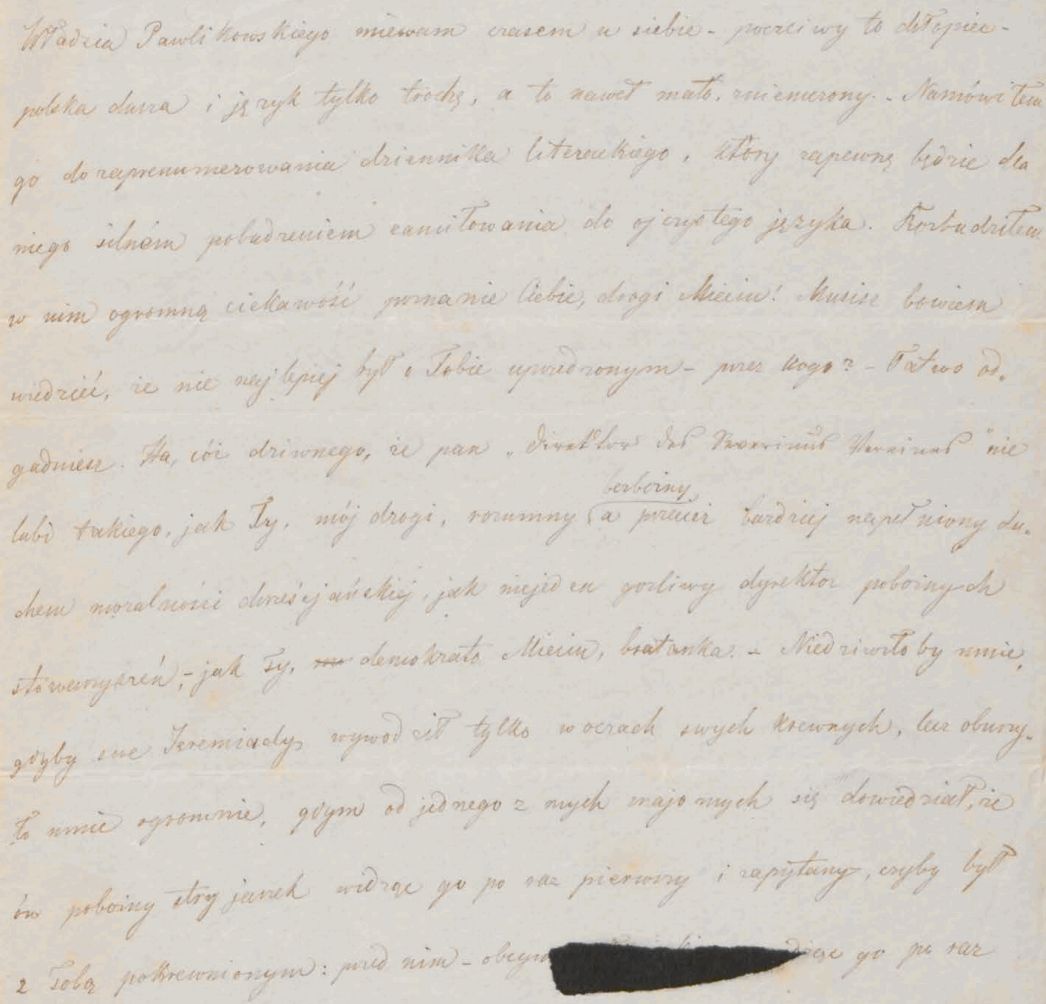 Władzia Pawlikowskiego miewam czasem u siebie - poczciwy to chłopiec -
polska dusza i język tylko trochę, a to nawet mało, zniemczony. - Namówiłem
go do zaprenumerowania dziennika literackiego, który zapewnę będzie dla
niego silném pobudzeniem zamiłowania do ojczystego języka. Rozbudziłem
w nim ogromną ciekawość poznanie Ciebie, drogi Mieciu! Musisz bowiem
wiedzieć, że nie najlepiej był o Tobie uprzedzonym - przez kogo? - Łatwo od-
gadniesz. Ha, cóż dziwnego, że pan „Direktor des Severinus Vereines" nie
lubi takiego, jak Ty, mój drogi, rozumny a przecież bardziej napełniony du-
bezbożny
chem moralności chrześcijańskiéj, jak niejeden gorliwy dyrektor pobożnych
stowarzyszeń, - jak Ty, demokrato Mieciu, bratanka. - Niedziwiłoby mnie,
gdyby swe Jeremiady wywodził tylko w oczach swych krewnych, lecz oburzy-
ło mnie ogromnie, gdym od jednego z mych znajomych się dowiedział, że
ów pobożny stryjaszek widząc go po raz pierwszy i zapytany, czyby był
z Tobą pokrewnionym: przed nim - go po raz